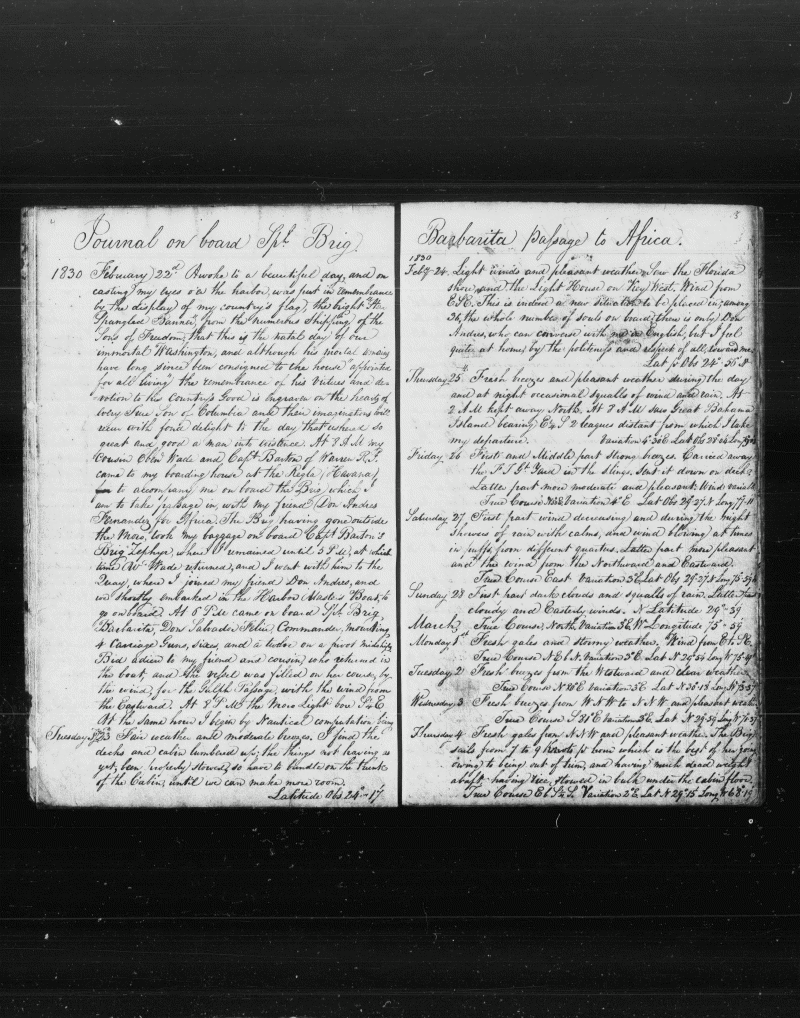 Journal on board Sph. Brig
1830 February 22d. Awoke to a beautiful day, and on
casting my eyes o'er the harbor, was put in remembrance
by the display of my country's flag, the bright "Star
Spangled Banner" from the numerous Shipping of the
Sons of Freedom, that this is the natal day of our
immortal Washington, and although his mortal remains
have long since been consigned to the "house appointed
for all living" the remembrance of his Virtues and de-
votion to his Country's Good is engraven on the hearts of
every true Son of Columbia and their imaginations will
recur with fond delight to the day that ushered so
great and good a man into existence. At 8 A M my
Cousin Ebenr. Wade and Capt. Barton of Warren R.I.
came to my boarding house at the Regla (Havana)
to accompany me on board the Brig which I
am to take passage in, with my friend Don Andres
Fernandez for Africa. The Brig having gone outside
the Moro, took my baggage on board Capt Barton's
Brig Zephyr, where I remained until 5 P M, at which
time Mr Wade returned, and I went with him to the
Quay, where I joined my friend Don Andres, and
we shortly embarked in the Harbor Master's Boat, to
go on board. At 6 P M came on board Sph. Brig
Barbarita, Don Salvador Feliu, Commander, mounting
4 Carriage Guns, sixes, and a twelve on a pivot midships
Bid adieu to my friend and cousin, who returned in
the boat, and the vessel was filled on her course, by
the wind, for the Gulph Passage, with the wind from
the Eastward. At 8 P M the Moro Light bore
At the same hour I begin by Nautical computation
Tuesday 23 Fair weather and moderate breezes. I find the
decks and cabin lumbered up; the things not having as
yet, been properly stowed, so have to bundle on the trunk
of the Cabin, until we can make more room.
Latitude Obs. 24°–17'
3
Barbarita passage to Africa.
1830
Feby 24 Light winds and pleasant weather. Saw the Florida
shore, and the Light House on Key West, Wind from
E S E. This is indeed a new situation to be placed in; among
36, the whole number of souls on board, there is only Don
Andres, who can converse with me in English, but I feel
quite at home, by the politeness and respect of all, toward me.
Lat p Obs 24°–36' N
Thursday 25th Fresh breezes and pleasant weather during the day
and at night occasional squalls of wind and rain. At
2 A M kept away North. At 8 A M saw Great Bahama
Island bearing E 1/2 S 2 leagues distant from which I take
my departure. Variation 4°30'E Lat Obs
Friday 26 First and Middle part Strong breezes Carried away
the F. T. Gt Yard in the Slings. Sent it down on deck.
Latter part more moderate and pleasant. Wind variable
True Course Variation 4°E Lat Obs 29°27 N Long 77–11
Saturday 27 First part wind decreasing and during the night
showers of rain with calms, and wind blowing at times
in puffs from different quarters. Latter part more pleasant
and the wind from the Northward and Eastward.
True Course East Variation 3°E Lat Obs 29–27 N Long 75–59 W
Sunday 28 First part dark clouds and squalls of rain, Latter part
cloudy and Easterly winds. N Latitude 29°–59
March True Course North Variation 3°E Wt Longitude 75°–59
Monday 1st Fresh gales and stormy weather, Wind from E to S E.
True Course N E b N. Variation 3°E Lat N 29–54 Long W
Tuesday 2 Fresh breezes from the Westward and clear weather
True Course N 86 E variation 3°E Lat N 30–18 Long W 73–57
Wednesday 3 Fresh breezes from W N W to N N W and pleasant weather
True Course S 78° E Variation 3°E Lat N 29–59 Long W
Thursday 4 Fresh gales from N N W and pleasant weather. The Brig
sails from 7 to 9 knots p hour which is the best of her going
owing to being out of trim, and having much dead weight
abaft, having Rice, stowed in bulk under the cabin floor.
True Course E b S 1/2 S. Variation 2°E Lat N 29°–15' Long W 68–19